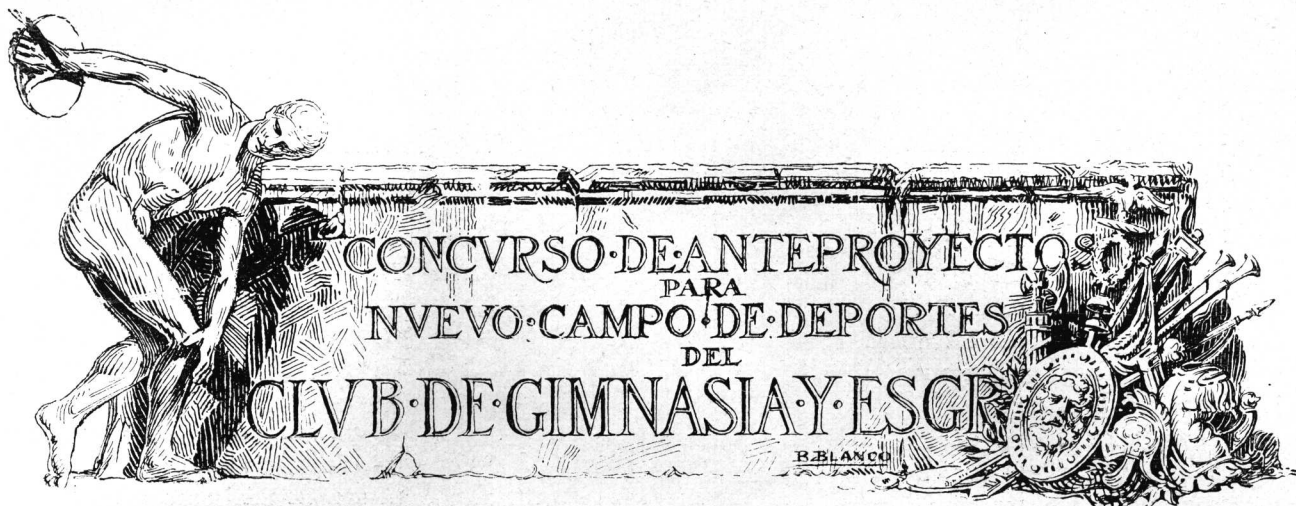 CONCVRSO·DE·ANTEPROYECTOS
PARA
NVEVO·CAMPO·DE·DEPORTES
DEL
CLVB·DE·GIMNASIA·Y·ESGR
R.BLANCO